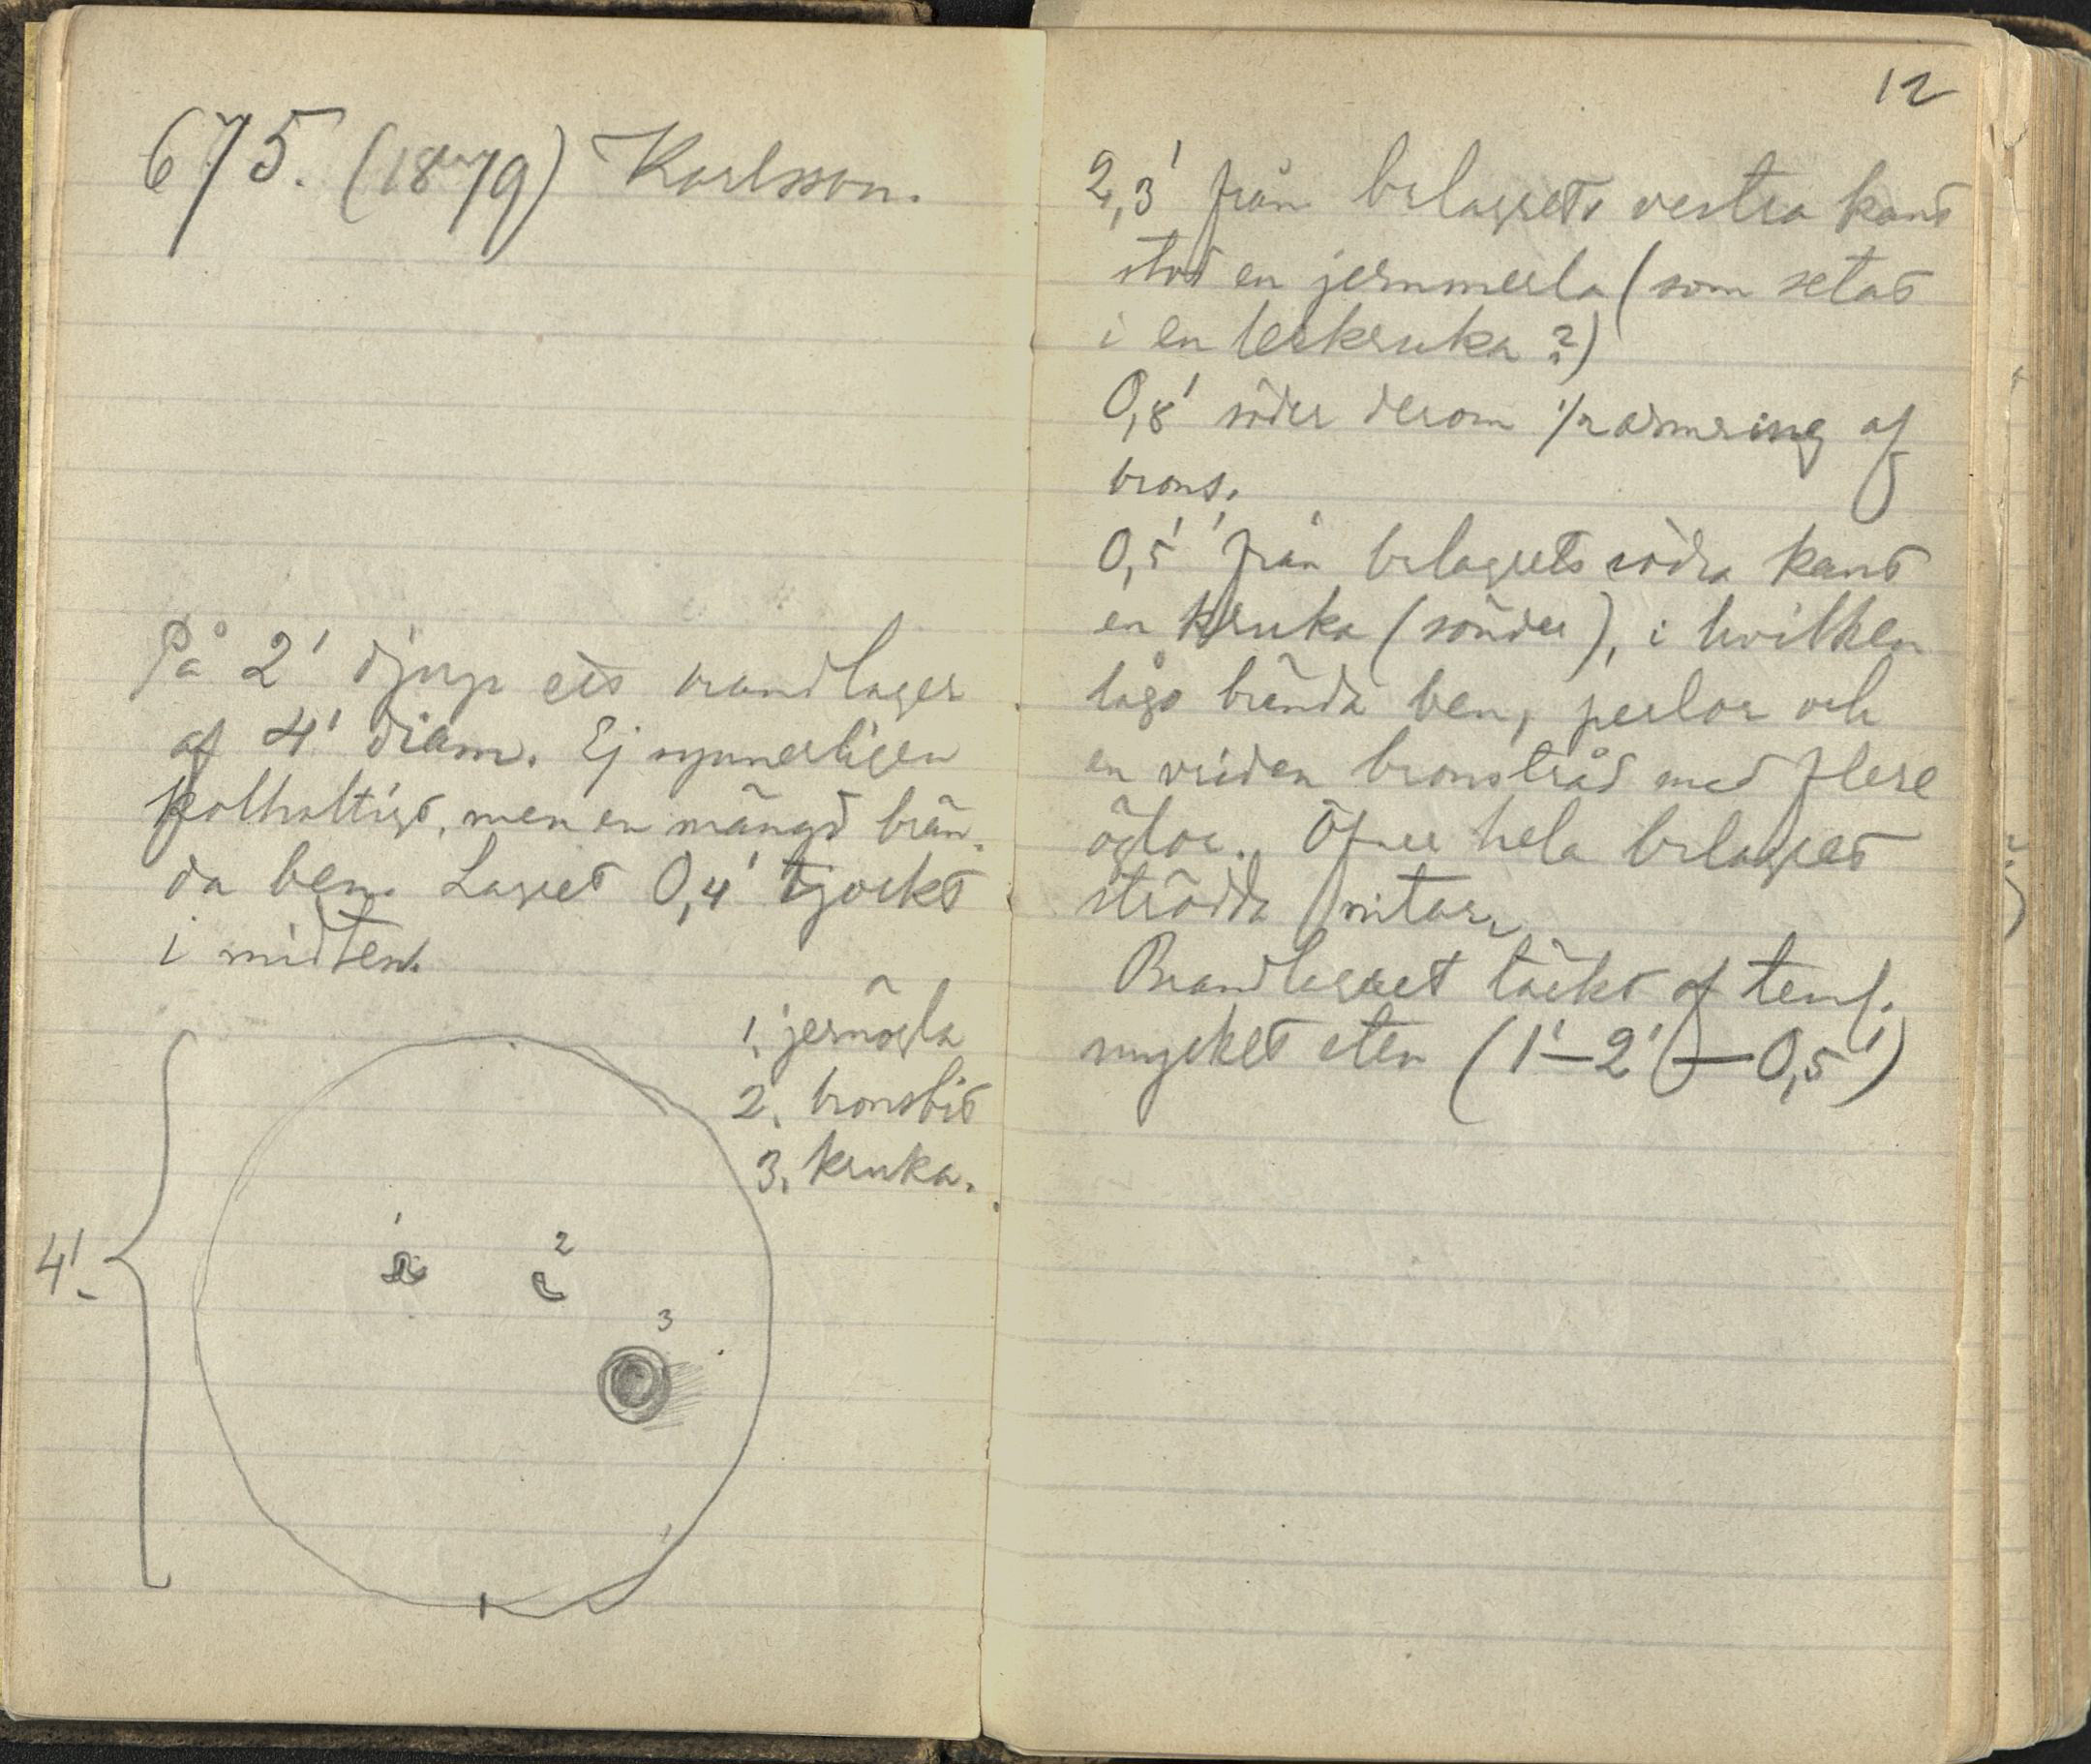 675. (1879) Karlsson.
På 2' djup ett brandlager
af 4' diam. Ej synnerligen
kolhaltigt, men en mängd brän-
da ben. Lagret 0,4' tjockt
i midten.
1. jernögla
2. bronsbit
3. kruka.
4'
1
2
3
12
2,3' från brlagrets vestra kant
stod en jernmerla (som setat
i en lerkruka?)
0,8' söder derom 1/2 armring af
brons.
0,5' från brlagrets södra kant
en kruka (sönder), i hvilken
lågo brända ben, perlor och
en vriden bronstråd med flere
öglor. Öfver hela brlagret
strödda nitar.
Brandlagret täckt af teml.
mycket sten (1'—2' — 0,5')